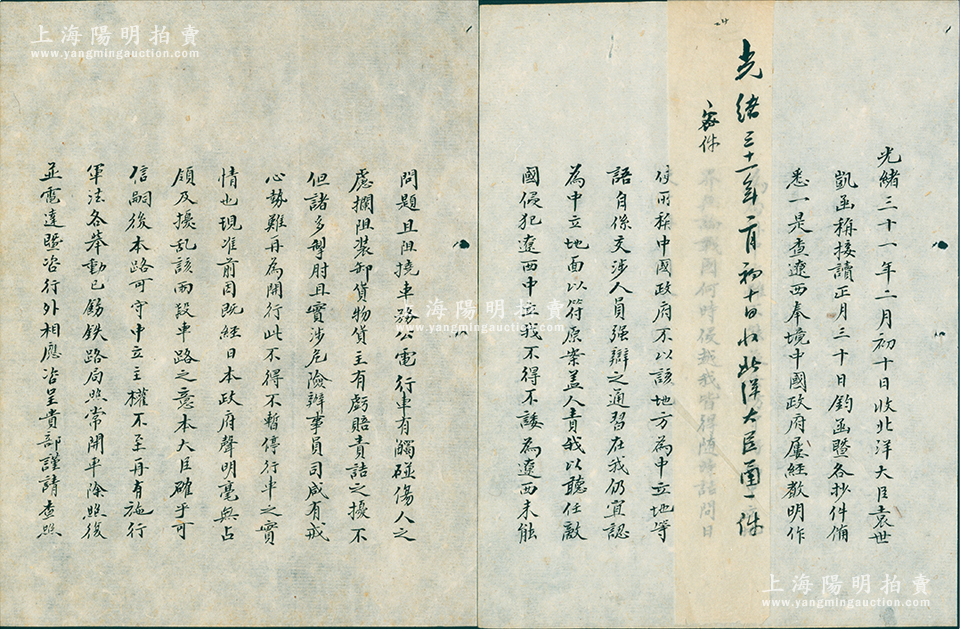 光緒三十一年二月初十日收北洋大臣袁世
凱函稱接讀正月三十日鈞函暨各抄件備
悉一是查遼西奉境中國政府屢經教明作
光緒三十一年二月初十日收北洋大臣函一件
密件
使所稱中國政府不以該地方為中立地等
語自係交涉人員強辯之通習在我仍宜認
為中立地面以符原案蓋人責我以聽任敵
國侵犯遼西中立我不得不諉為遼西未能
問題且阻撓車務公電行車有觸碰傷人之
慮攔阻裝卸貨物貨主有虧賠責詰之擾不
但諸多掣肘且實涉危險辦事員司咸有戒
心勢難再為開行此不得不暫停行車之實
情也現准前因既經日本政府聲明毫無占
領及擾乱該兩段車路之意本大臣確乎可
信嗣後本路可守中立主權不至再有施行
軍法各舉動已飭鉄路局照常開車除照復
並電達暨咨行外相應咨呈貴部謹請查照
上海陽明拍賣
www.yangmingauction.com
上海陽明拍賣
www.yangmingauction.com
上海陽明拍賣
www.yangmingauction.com